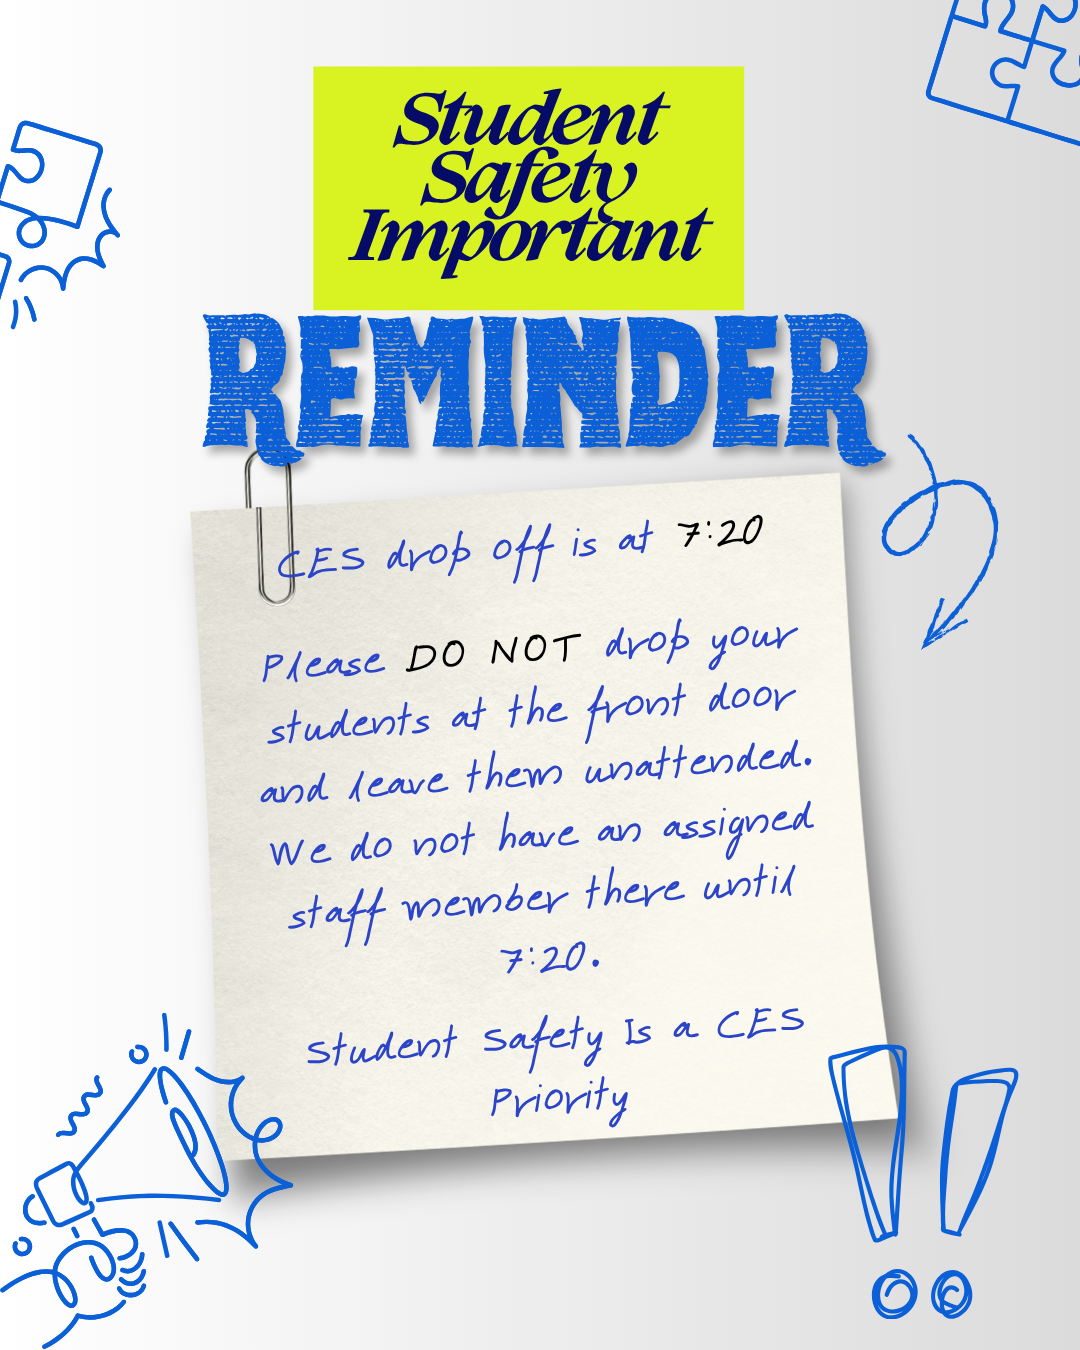 Student
Safety
Important
REMINDER
CES drop off is at 7:20
Please DO NOT drop your
students at the front door
and leave them unattended.
We do not have an assigned
staff member there until
7:20.
Student Safety Is a CES
Priority